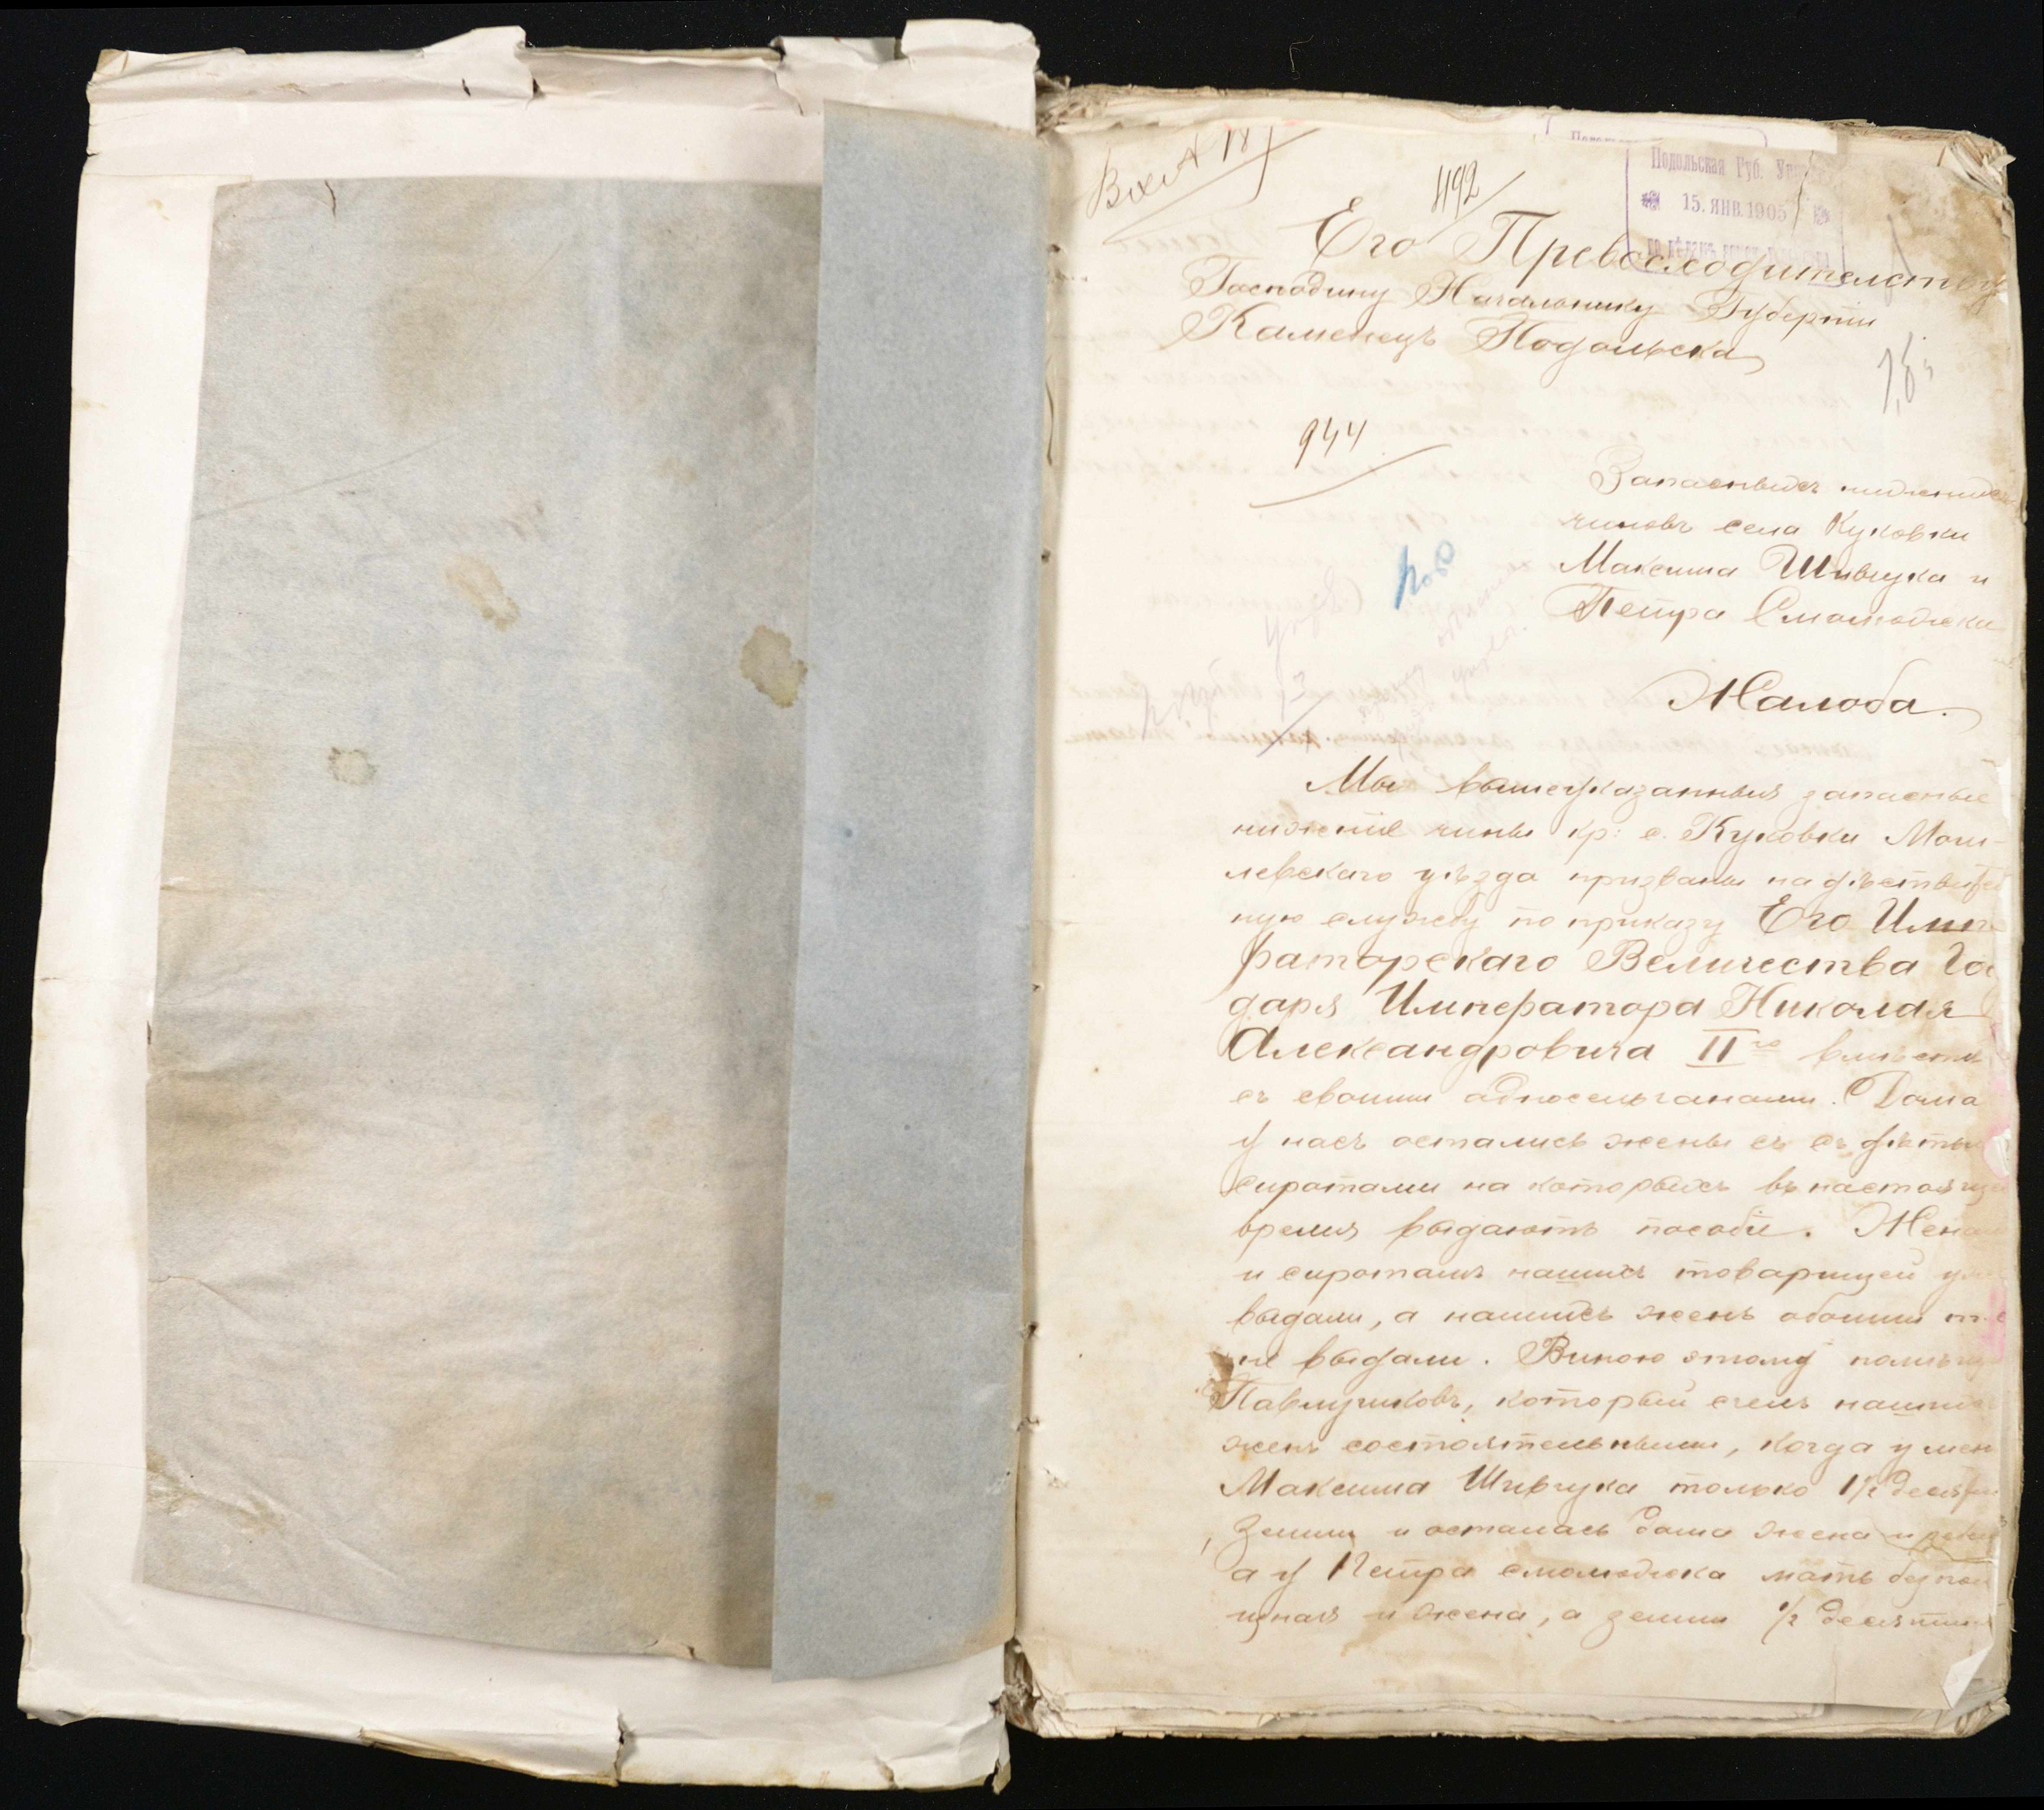 Вх А 18
1192
Подольская Губ.
15. ЯНВ. 1905
Его Превосходителству
Господину Начальнику Губернии
Каменецъ Подольска
944
Запасныхъ нижних
чиновъ села Куковки
Максима Шивчука и
Петра Смолюдека
Жалоба.
Мы вышеуказанныя запасные
нижние чины кр: с. Куковки Моги-
левскаго уѣзда призваны на дѣствител
ную службу по приказу Его Импе
раторскаго Величества Го
даря Императора Николая
Александровича II го вмѣстѣ
съ своими односельчанами. Дома
у насъ остались жены съ съ дѣтьми
сиротами на которыхъ въ настоящи
время выдаютъ пособіе. Жена
и сиротамъ нашихъ товарищей
выдали, а нашихъ женъ обоими
не выдали. Виною этому
Павлучиковъ, который счелъ нашихъ
женъ состоятельными, когда у мен
Максима Шивчука только 1½ десят
земли и осталась дома жена и
а у Петра Смолюдека мать
щная и жена, а земли ½ десятины